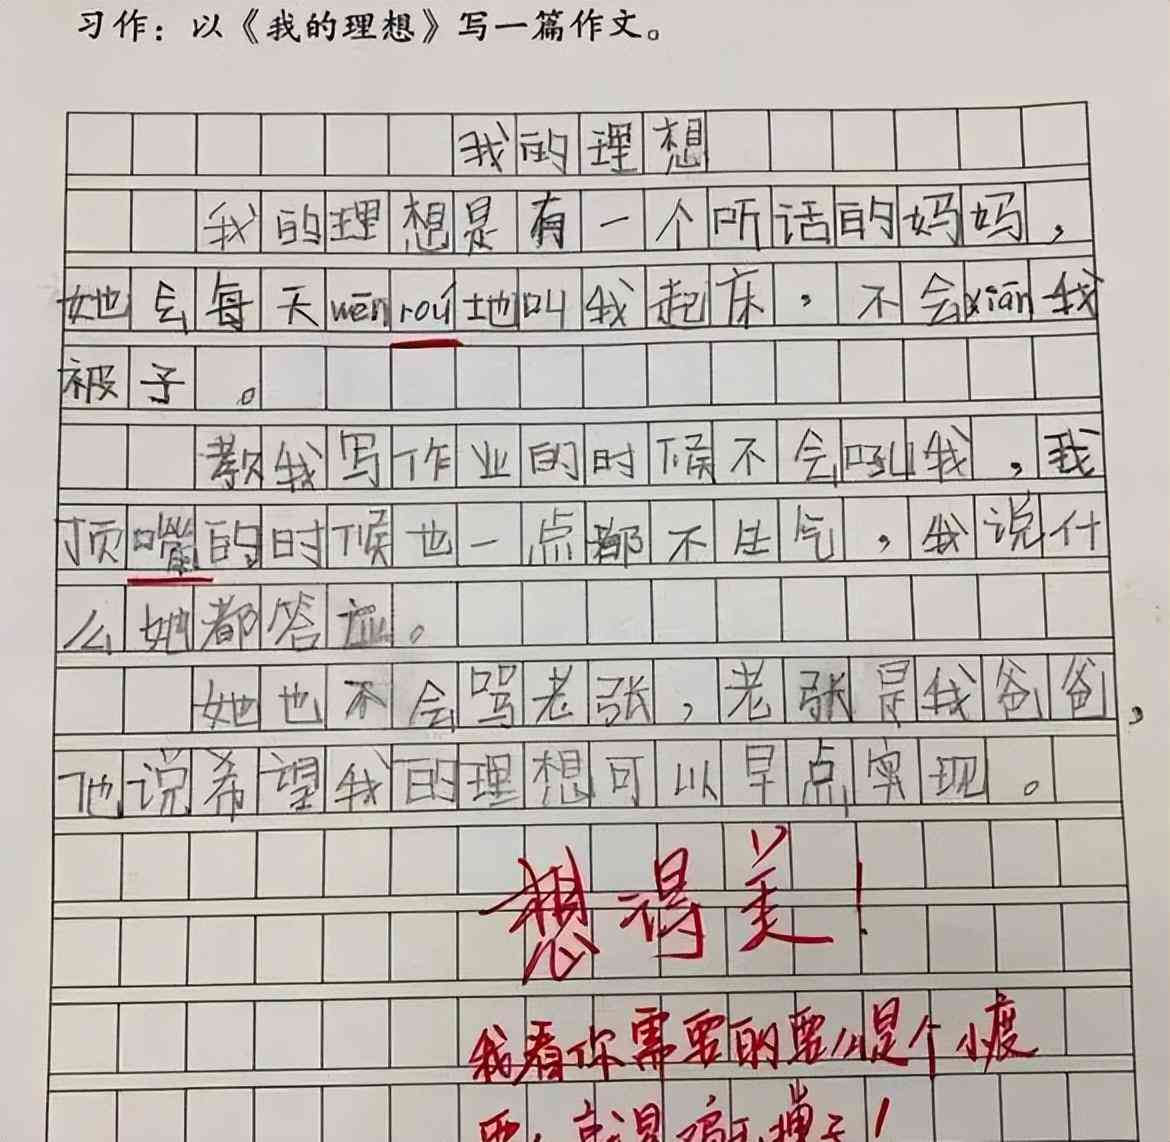 习作：以《我的理想》写一篇作文。
我的理想
我的理想是有一个听话的妈妈，
她会每天wēn roú地叫我起床，不会xiān我
被子。
教我写作业的时候不会吼我，我
顶嘴的时候也一点都不生气，我说什
么她都答应。
她也不会骂老张，老张是我爸爸，
他说希望我的理想可以早点实现。
想得美！
我看你需要的要么是个小度
要么就是